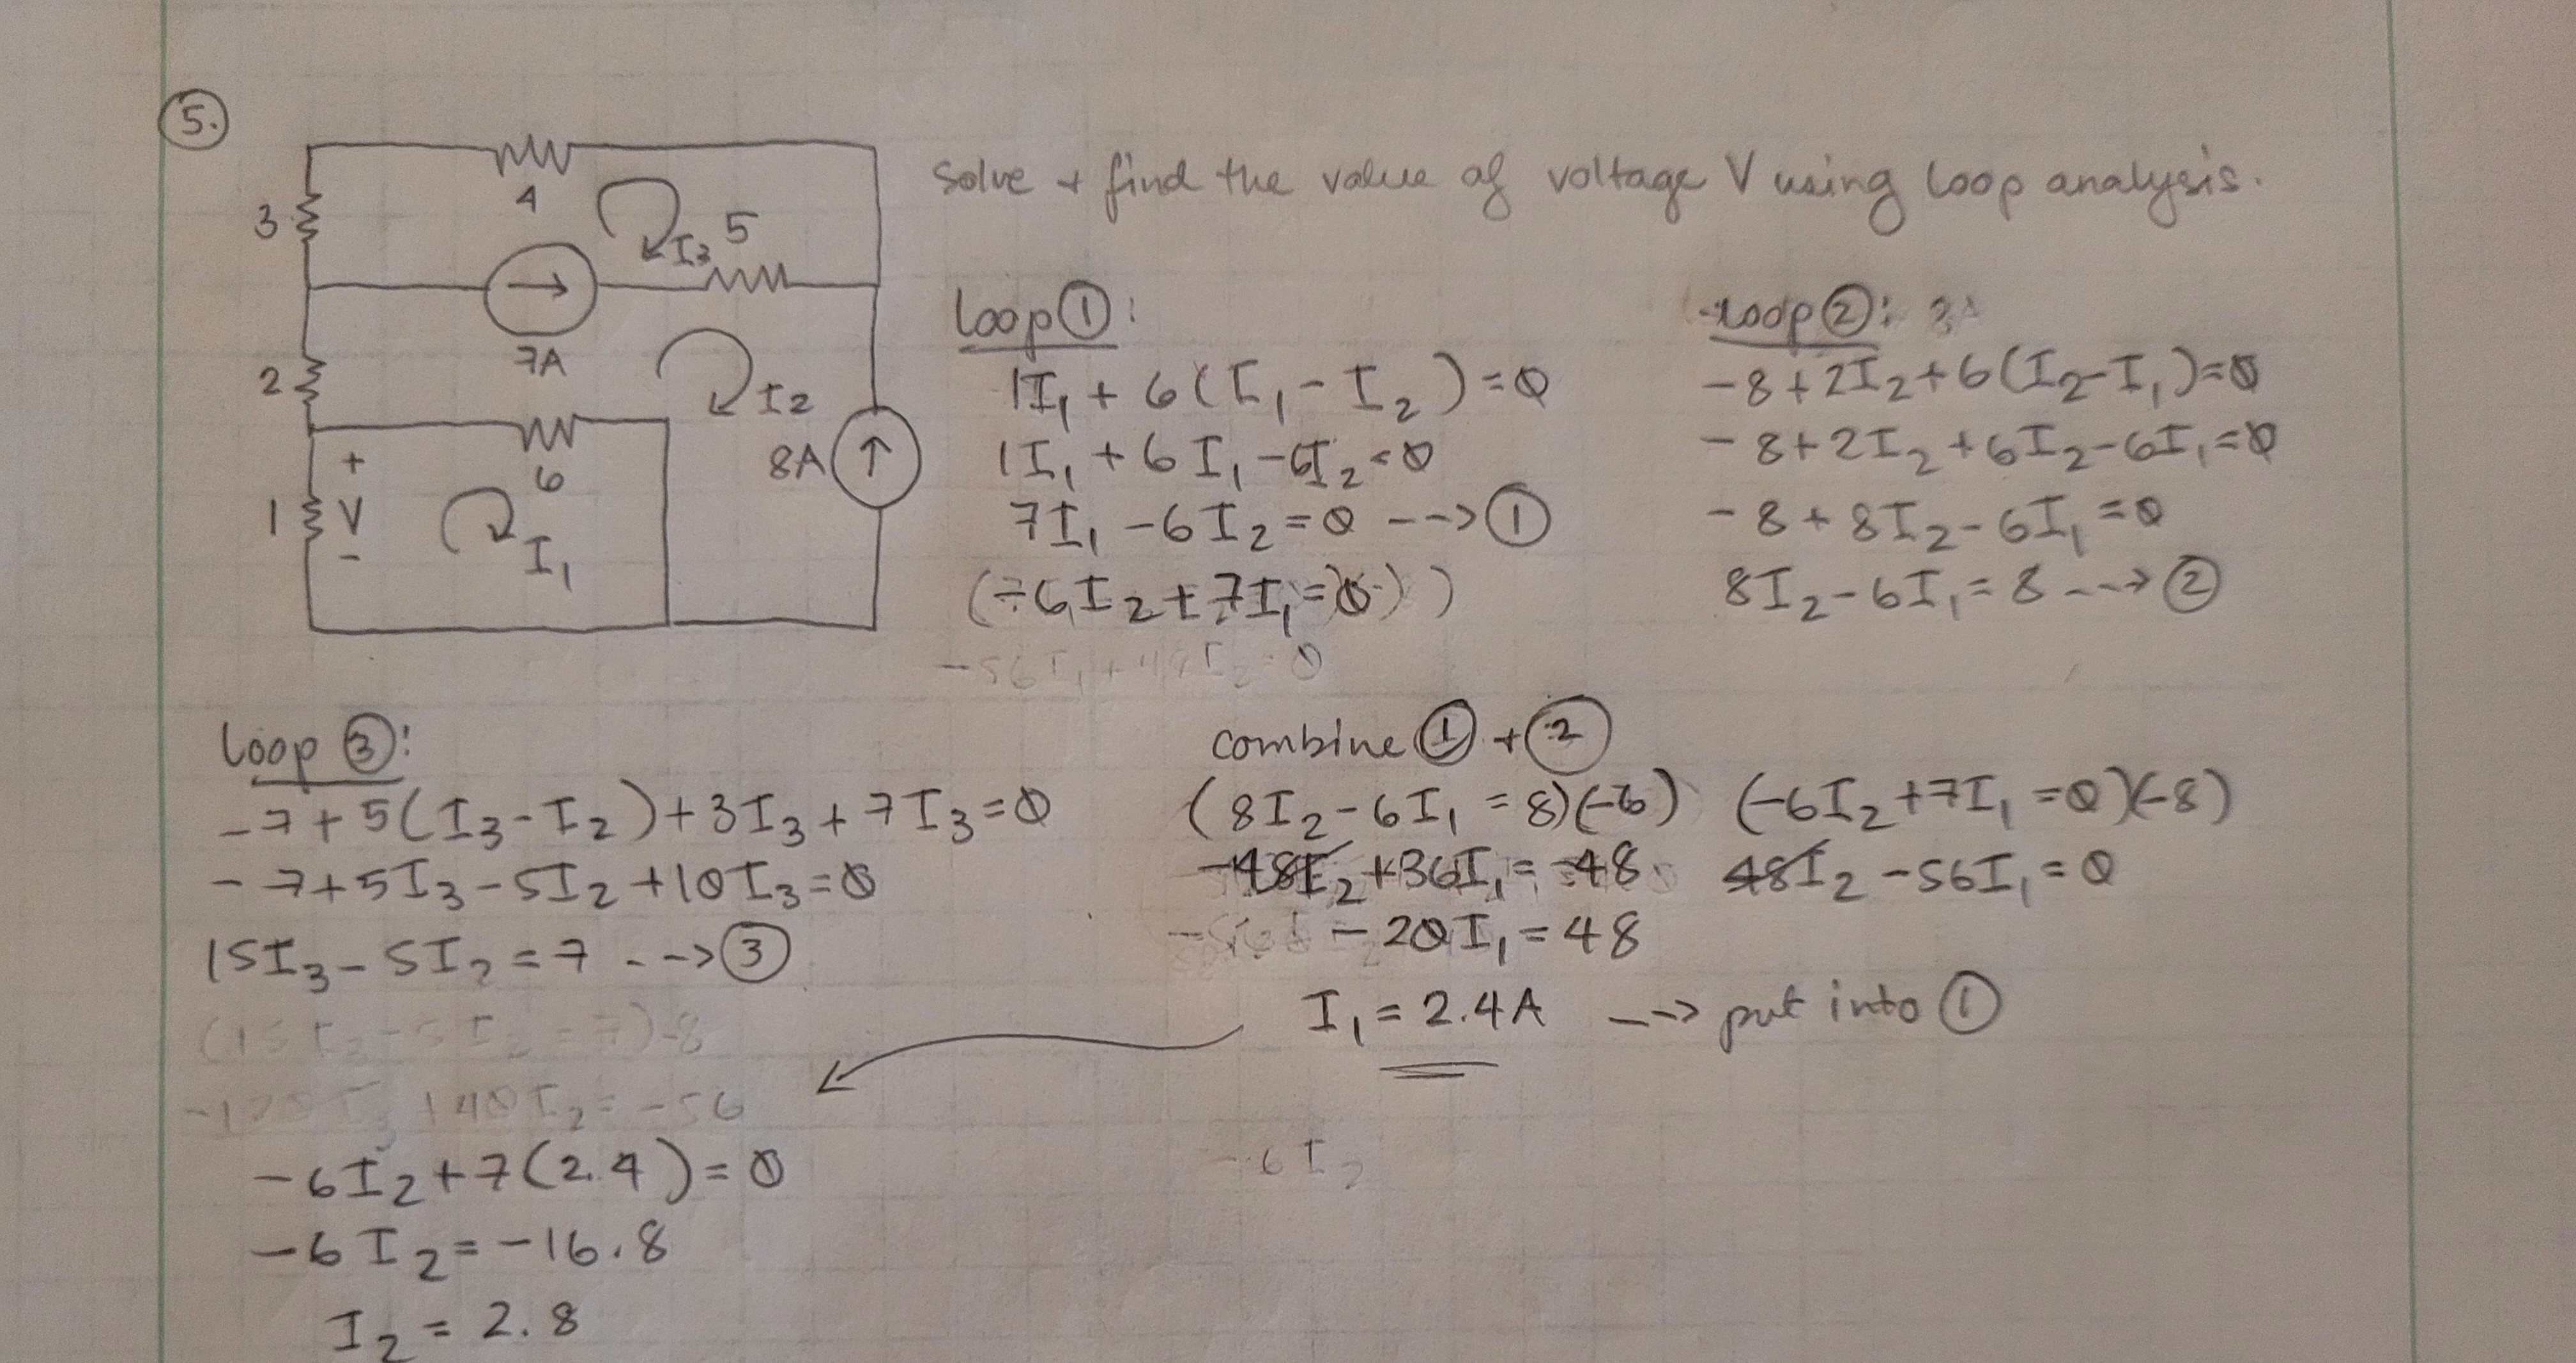 5.
4
3
I3 5
7A
2
I2
8A
+
6
1 V
-
I1
Solve + find the value of voltage V using loop analysis.
loop ①:
1I₁ + 6(I₁ - I₂) = 0
1I₁ + 6I₁ - 6I₂ = 0
7I₁ - 6I₂ = 0 --> ①
(-6I₂ + 7I₁ = 0)
loop ②:
-8 + 2I₂ + 6(I₂ - I₁) = 0
-8 + 2I₂ + 6I₂ - 6I₁ = 0
-8 + 8I₂ - 6I₁ = 0
8I₂ - 6I₁ = 8 --> ②
loop ③:
-7 + 5(I₃ - I₂) + 3I₃ + 7I₃ = 0
-7 + 5I₃ - 5I₂ + 10I₃ = 0
15I₃ - 5I₂ = 7 --> ③
combine ① + ②
(8I₂ - 6I₁ = 8)(-6) (-6I₂ + 7I₁ = 0)(-8)
-48I₂ + 36I₁ = -48 48I₂ - 56I₁ = 0
-20I₁ = 48
I₁ = 2.4A --> put into ①
-6I₂ + 7(2.4) = 0
-6I₂ = -16.8
I₂ = 2.8